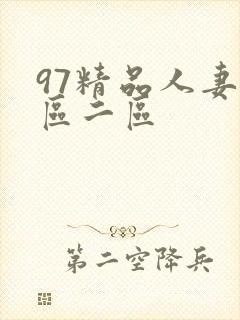 97精品人妻
區二區
第二空降兵